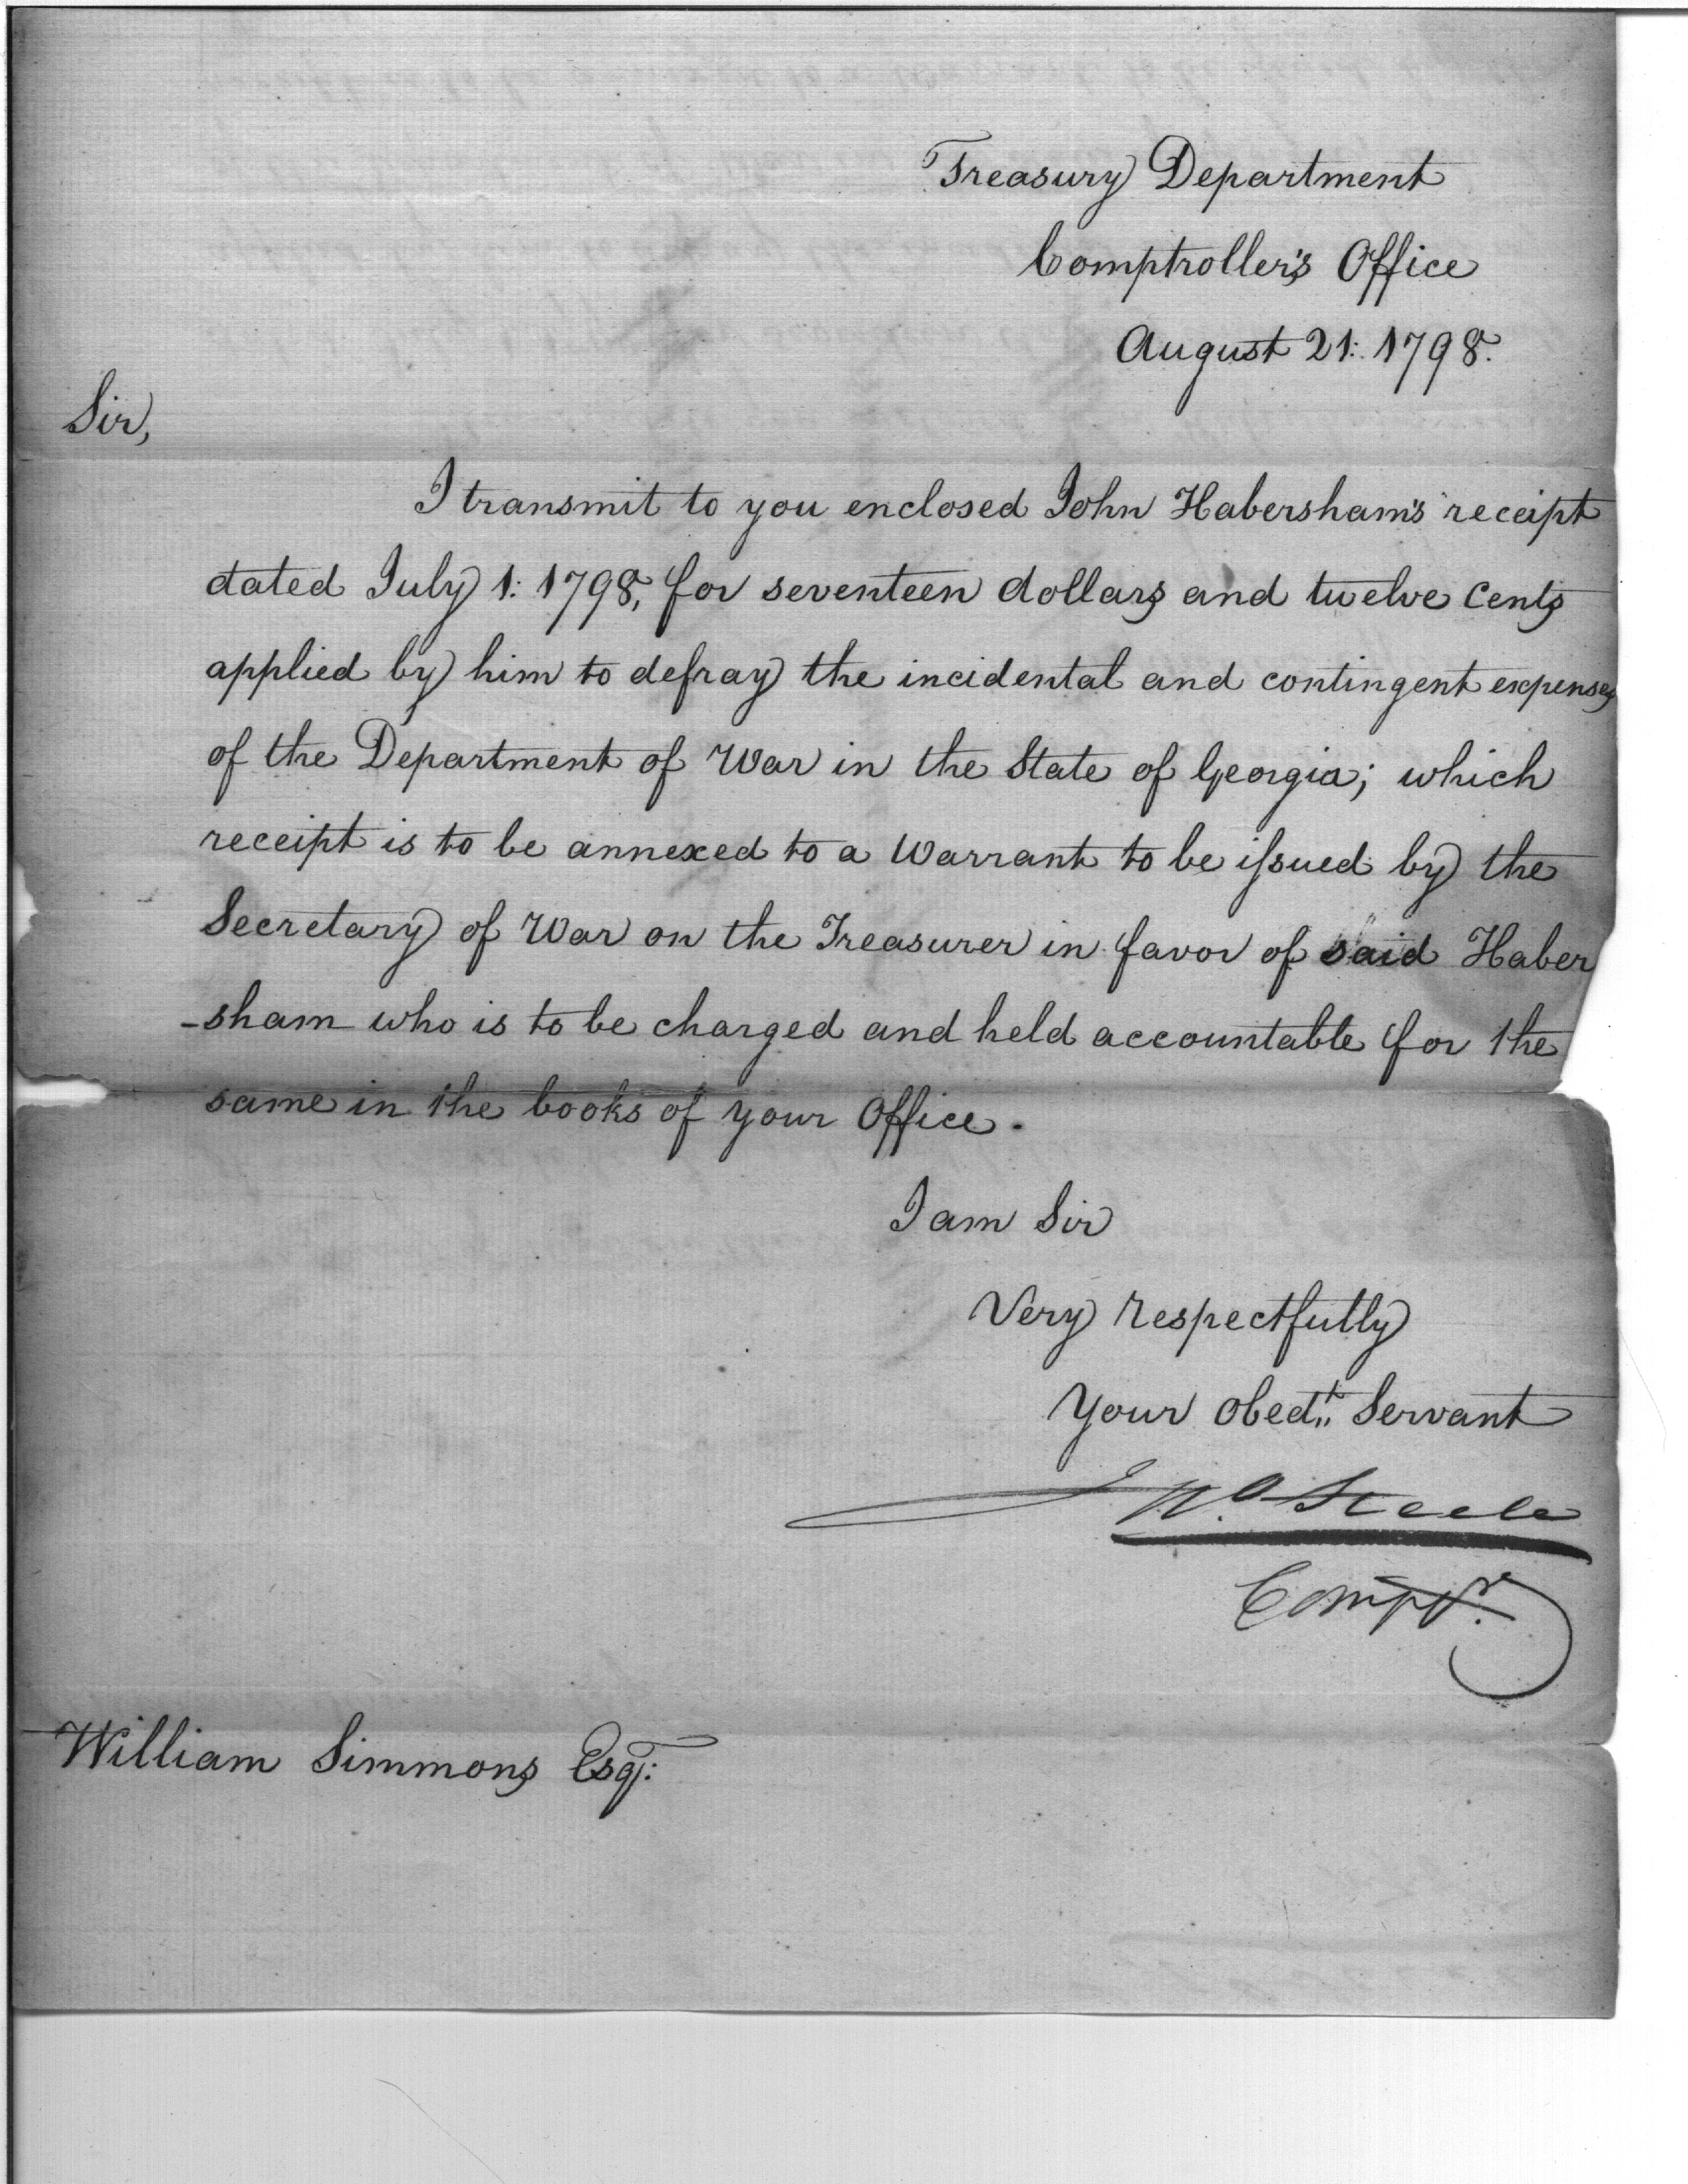 Treasury Department
Comptroller's Office
August 21: 1798.
Sir,
I transmit to you enclosed John Habersham's receipt
dated July 1: 1798, for seventeen dollars and twelve Cents
applied by him to defray the incidental and contingent expenses
of the Department of War in the State of Georgia; which
receipt is to be annexed to a Warrant to be issued by the
Secretary of War on the Treasurer in favor of said Haber
-sham who is to be charged and held accountable for the
same in the books of your Office.
I am Sir
Very respectfully
Your Obedt. Servant
Jno. Steele
Compr.
William Simmons Esqr: